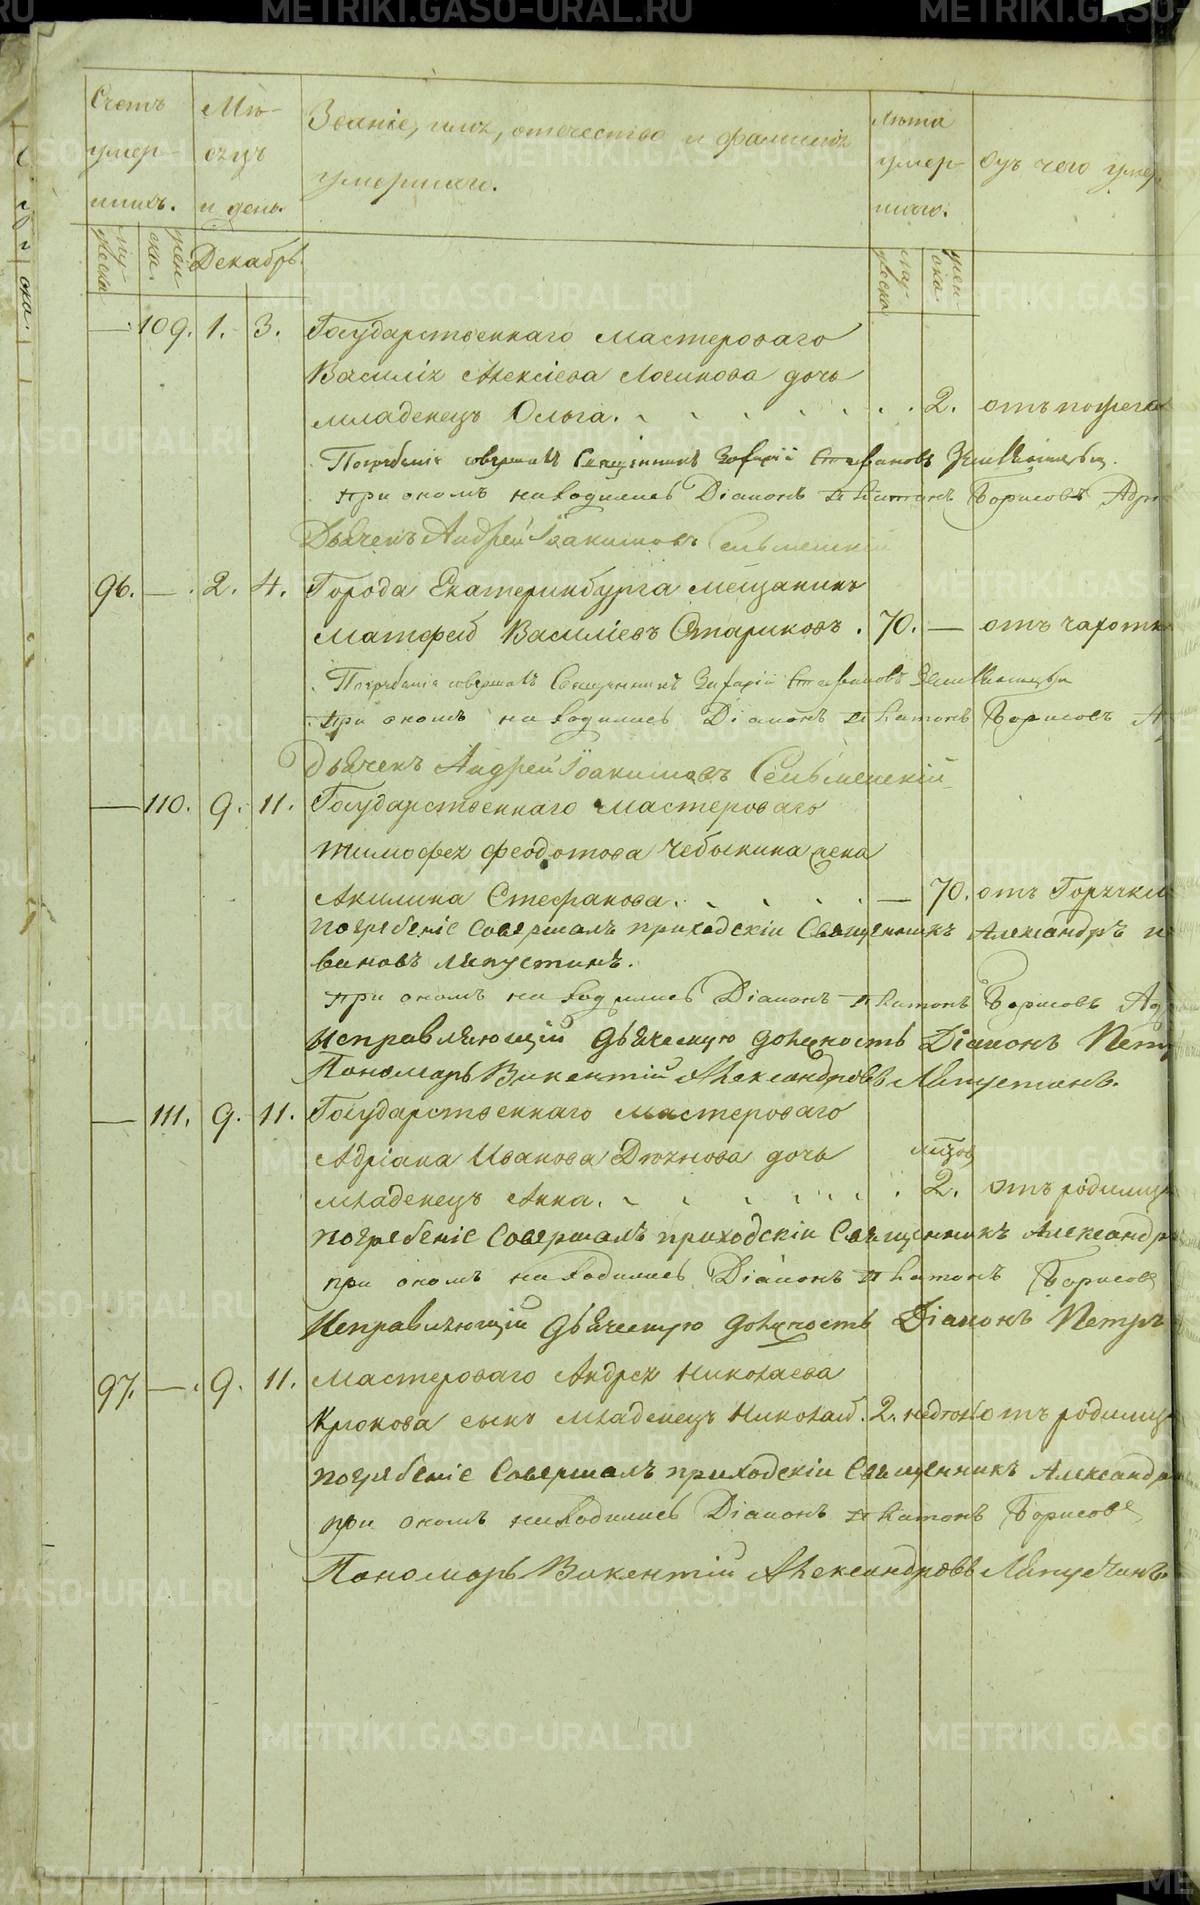 Счетъ умер- шихъ.
Мѣ- сяцъ и день.
Званіе, имя, отечество и фамилія умершаго.
Лѣта умер- шаго.
Отъ чего умер
муж- ска
жен- ска.
Декабрь.
муж- ска
жен- ска.
— 109. 1. 3. Государственнаго мастероваго
Василія Алексіева Логинова дочь
младенецъ Ольга. 2. отъ
Погребеніе совершалъ Священникъ Захарій Стефановъ
при ономъ находились Діаконъ Платонъ Борисовъ
Дьячекъ Андрей Іоакимовъ Сельменскій
96. — 2. 4. Города Екатеринбурга мещанинъ
Матфей Василіевъ Стариковъ. 70. — отъ чахотк
Погребеніе совершалъ Священникъ Захарій Стефановъ
при ономъ находились Діаконъ Платонъ Борисовъ А
Дьячекъ Андрей Іоакимовъ Сельменскій
— 110. 9. 11. Государственнаго мастероваго
Тимофея Феодотова Чебыкина жена
Акилина Стефанова. — 70. отъ Горячки
погребеніе Совершалъ приходскіи Священникъ Александръ И
вановъ Лапустинъ.
при ономъ находились Діаконъ Платонъ Борисовъ Ад
Исправляющій дьяческую должность Діаконъ Петр
Пономарь Викентій Александровъ Лапустинъ.
— 111. 9. 11. Государственнаго мастероваго
Адріана Иванова Дюянова дочь мцов
младенецъ Анна. 2. отъ родимц
погребеніе Совершалъ приходскіи Священникъ Александр
при ономъ находились Діаконъ Платонъ Борисов
Исправляющій дьяческую должность Діаконъ Петръ
97. — 9. 11. Мастероваго Андрея Николаева
Крюкова сынъ младенецъ Николай. 2. недѣль отъ родимц
погребеніе Совершалъ приходскіи Священникъ Александр
при ономъ находились Діаконъ Платонъ Борисов
Пономарь Викентій Александровъ Лапустинъ.
METRIKI.GASO-URAL.RU